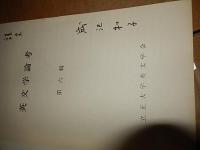 謹呈
和子
英文学論考
第六輯
立正大学英文学会